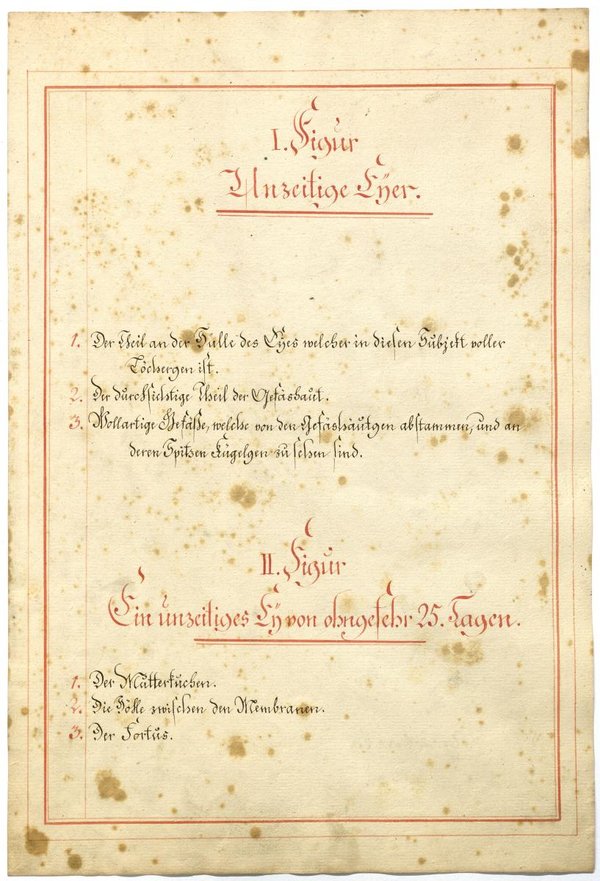 I. Figur
Unzeitige Eÿer.
1. Der Theil an der Hülle des Eyes welcher in diesen Subjekt voller
Löchergen ist.
2. Der durchsichtige Theil der Gefäshaut.
3. Wollartige Gefäße, welche von den Gefäshäutgen abstammen, und an
deren Spitzen Kügelgen zu sehen sind.
II. Figur
Ein unzeitiges Eÿ von ohngefehr 25. Tagen.
1. Der Mutterkuchen.
2. Die Höhle zwischen den Membranen.
3. Der Foetus.